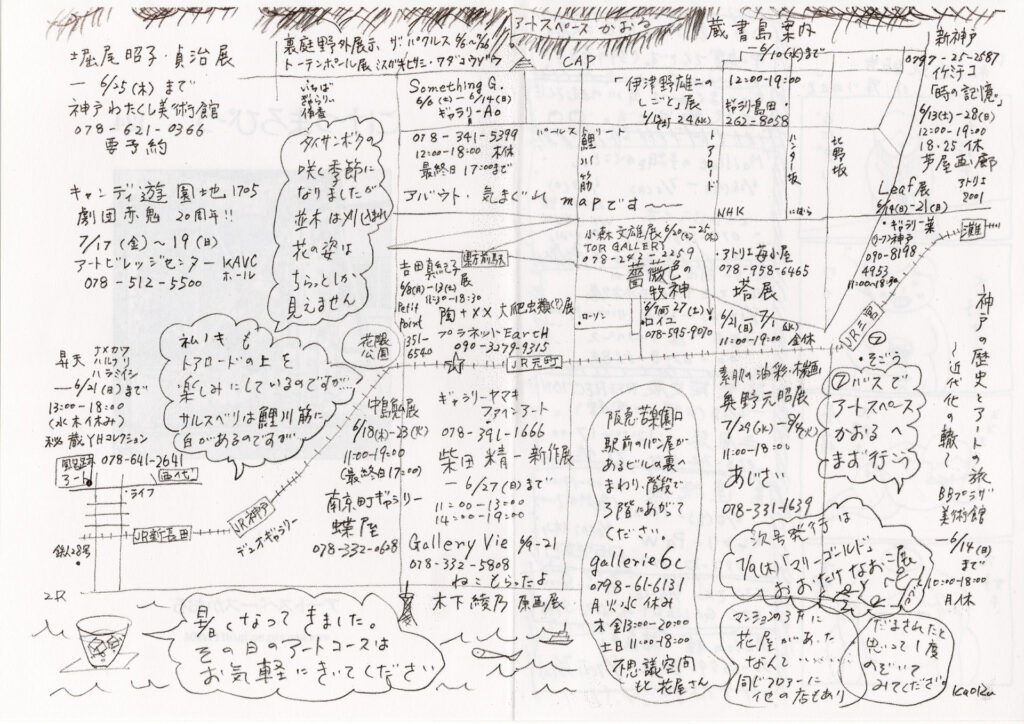 アートスペース かおる
蔵書島案内
—6/10(水)まで
新神戸
堀尾昭子・貞治展
— 6/25(木)まで
神戸わたくし美術館
078-621-0366
要予約
裏庭野外展示、ザ・パグルス 6/6~7/26
トーテンポール展 ミスガキヒサミ・ワダコウゾウ
CAP
いちば
ぎゃらりい
侑香
Something G.
6/6(土)—6/14(日)
ギャラリーAo
078-341-5399
12:00-18:00 木休
最終日17:00まで
「伊津野雄二の
しごと」展
12:00-19:00
ギャラリー島田
262-8058
0797-25-2587
イケミチコ
「時の記憶。」
6/13(土)-28(日)
12:00-19:00
18.25 休
芦屋画廊
アトリエ
2001
Leaf展
6/14(日)-21(日)
・ギャラリー菜
神戸
090-8198
4953
11:00-18:30
灘
パールストリート
鯉川筋
トアロード
ハンター坂
北野坂
アバウト・気まぐれ mapです〜
NHK
にはら
タイサンボクの
咲く季節に
なりましたが
並木は刈り込まれ
花の姿は
ちらっとしか
見えません
キャンディ遊園地1705
劇団赤鬼 20周年!!
7/17(金)~19(日)
アートビレッジセンター KAVC
ホール
078-512-5500
吉田真紀子
展
6/8(月)-13(土)
11:30-18:30
Petit
Point
351-
6540
県庁前駅
陶+×× 大爬虫類(?)展
プラネットEartH
090-3279-9315
小森文雄展 6/20(土)-25(木)
TOR GALLERY
薔薇色の
牧神
・ローソン
27(土)
・ロイユ
078-595-9070
・アトリエ苺小屋
078-958-6465
塔展
6/21(日)-7/1(水)
11:00-19:00 金休
JR三宮
⑦
・そごう
⑦バスで
アートスペース
かおるへ
まず行こう
神戸の歴史とアートの旅
〜近代化の轍〜
BBプラザ
美術館
—6/14(日)
まで
10:00-18:00
月休
私ノキも
トアロードの上を
楽しみにしているのですが…
サルスベリは鯉川筋に
白があるのですが
花隈
公園
JR元町
昇天
ナメカワ
ハルフリ
ハラミイシ
—6/21(日)まで
13:00-18:00
(水木休み)
秘蔵YHコレクション
078-641-2641
西代
・ライフ
JR新長田
鉄人28号
JR神戸
デュオギャラリー
中島 展
6/18(木)-23(火)
11:00-19:00
(最終日17:00)
南京町ギャラリー
蝶屋
078-332-0628
ギャラリーヤマキ
ファインアート
078-391-1666
柴田精一 新作展
— 6/27(日)まで
11:00-13:00
14:00-19:00
Gallery Vie 6/9-21
078-332-5808
ねこ とらったよ
木下綾乃 原画展
阪急苦楽園口
駅前のパン屋が
あるビルの裏へ
まわり、階段で
3階にあがって
ください。
gallerie6c
0798-61-6131
月火水 休み
木金13:00-20:00
土日11:00-18:00
不思議空間
もと花屋さん
素肌の油彩・水墨画
奥野元昭展
7/29(水)-8/4(火)
11:00-18:00
あじさい
078-331-1639
次号発行は
7/9(木)「マリーゴールド」
おおたけなおこ展
マンションの3Fに
花屋があった
なんて……
同じフロアーに
他の店もあり
だまされたと
思って1度
のぞいて
みてください。
Kaoru
2R
暑くなってきました。
その日のアートコースは
お気軽にきいてください